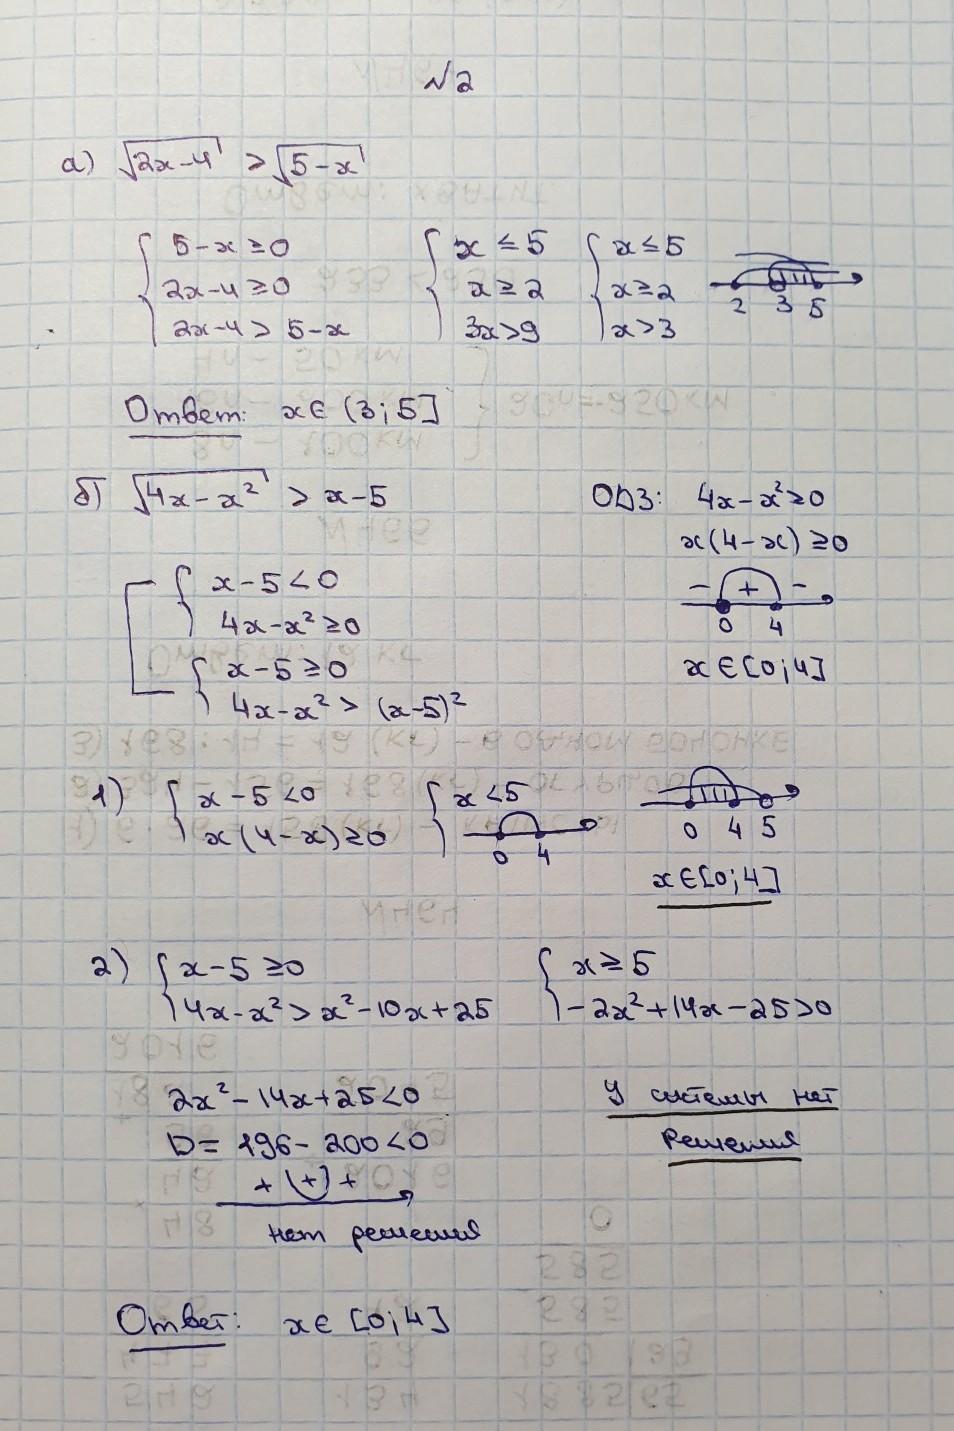 №2
а) √(2x-4) > √(5-x)
{ 5-x ≥ 0 { x ≤ 5 { x ≤ 5
2x-4 ≥ 0 x ≥ 2 x ≥ 2
2x-4 > 5-x 3x > 9 x > 3
2 3 5
Ответ: x ∈ (3; 5]
б) √(4x-x²) > x-5
ОДЗ: 4x-x² ≥ 0
x(4-x) ≥ 0
- + -
0 4
x ∈ [0; 4]
[ { x-5 < 0
4x-x² ≥ 0
{ x-5 ≥ 0
4x-x² > (x-5)²
1) { x-5 < 0 { x < 5
x(4-x) ≥ 0
0 4
0 4 5
x ∈ [0; 4]
2) { x-5 ≥ 0 { x ≥ 5
4x-x² > x²-10x+25 -2x²+14x-25 > 0
2x²-14x+25 < 0
D = 196-200 < 0
+ (+) +
нет решения
У системы нет
решения
Ответ: x ∈ [0; 4]